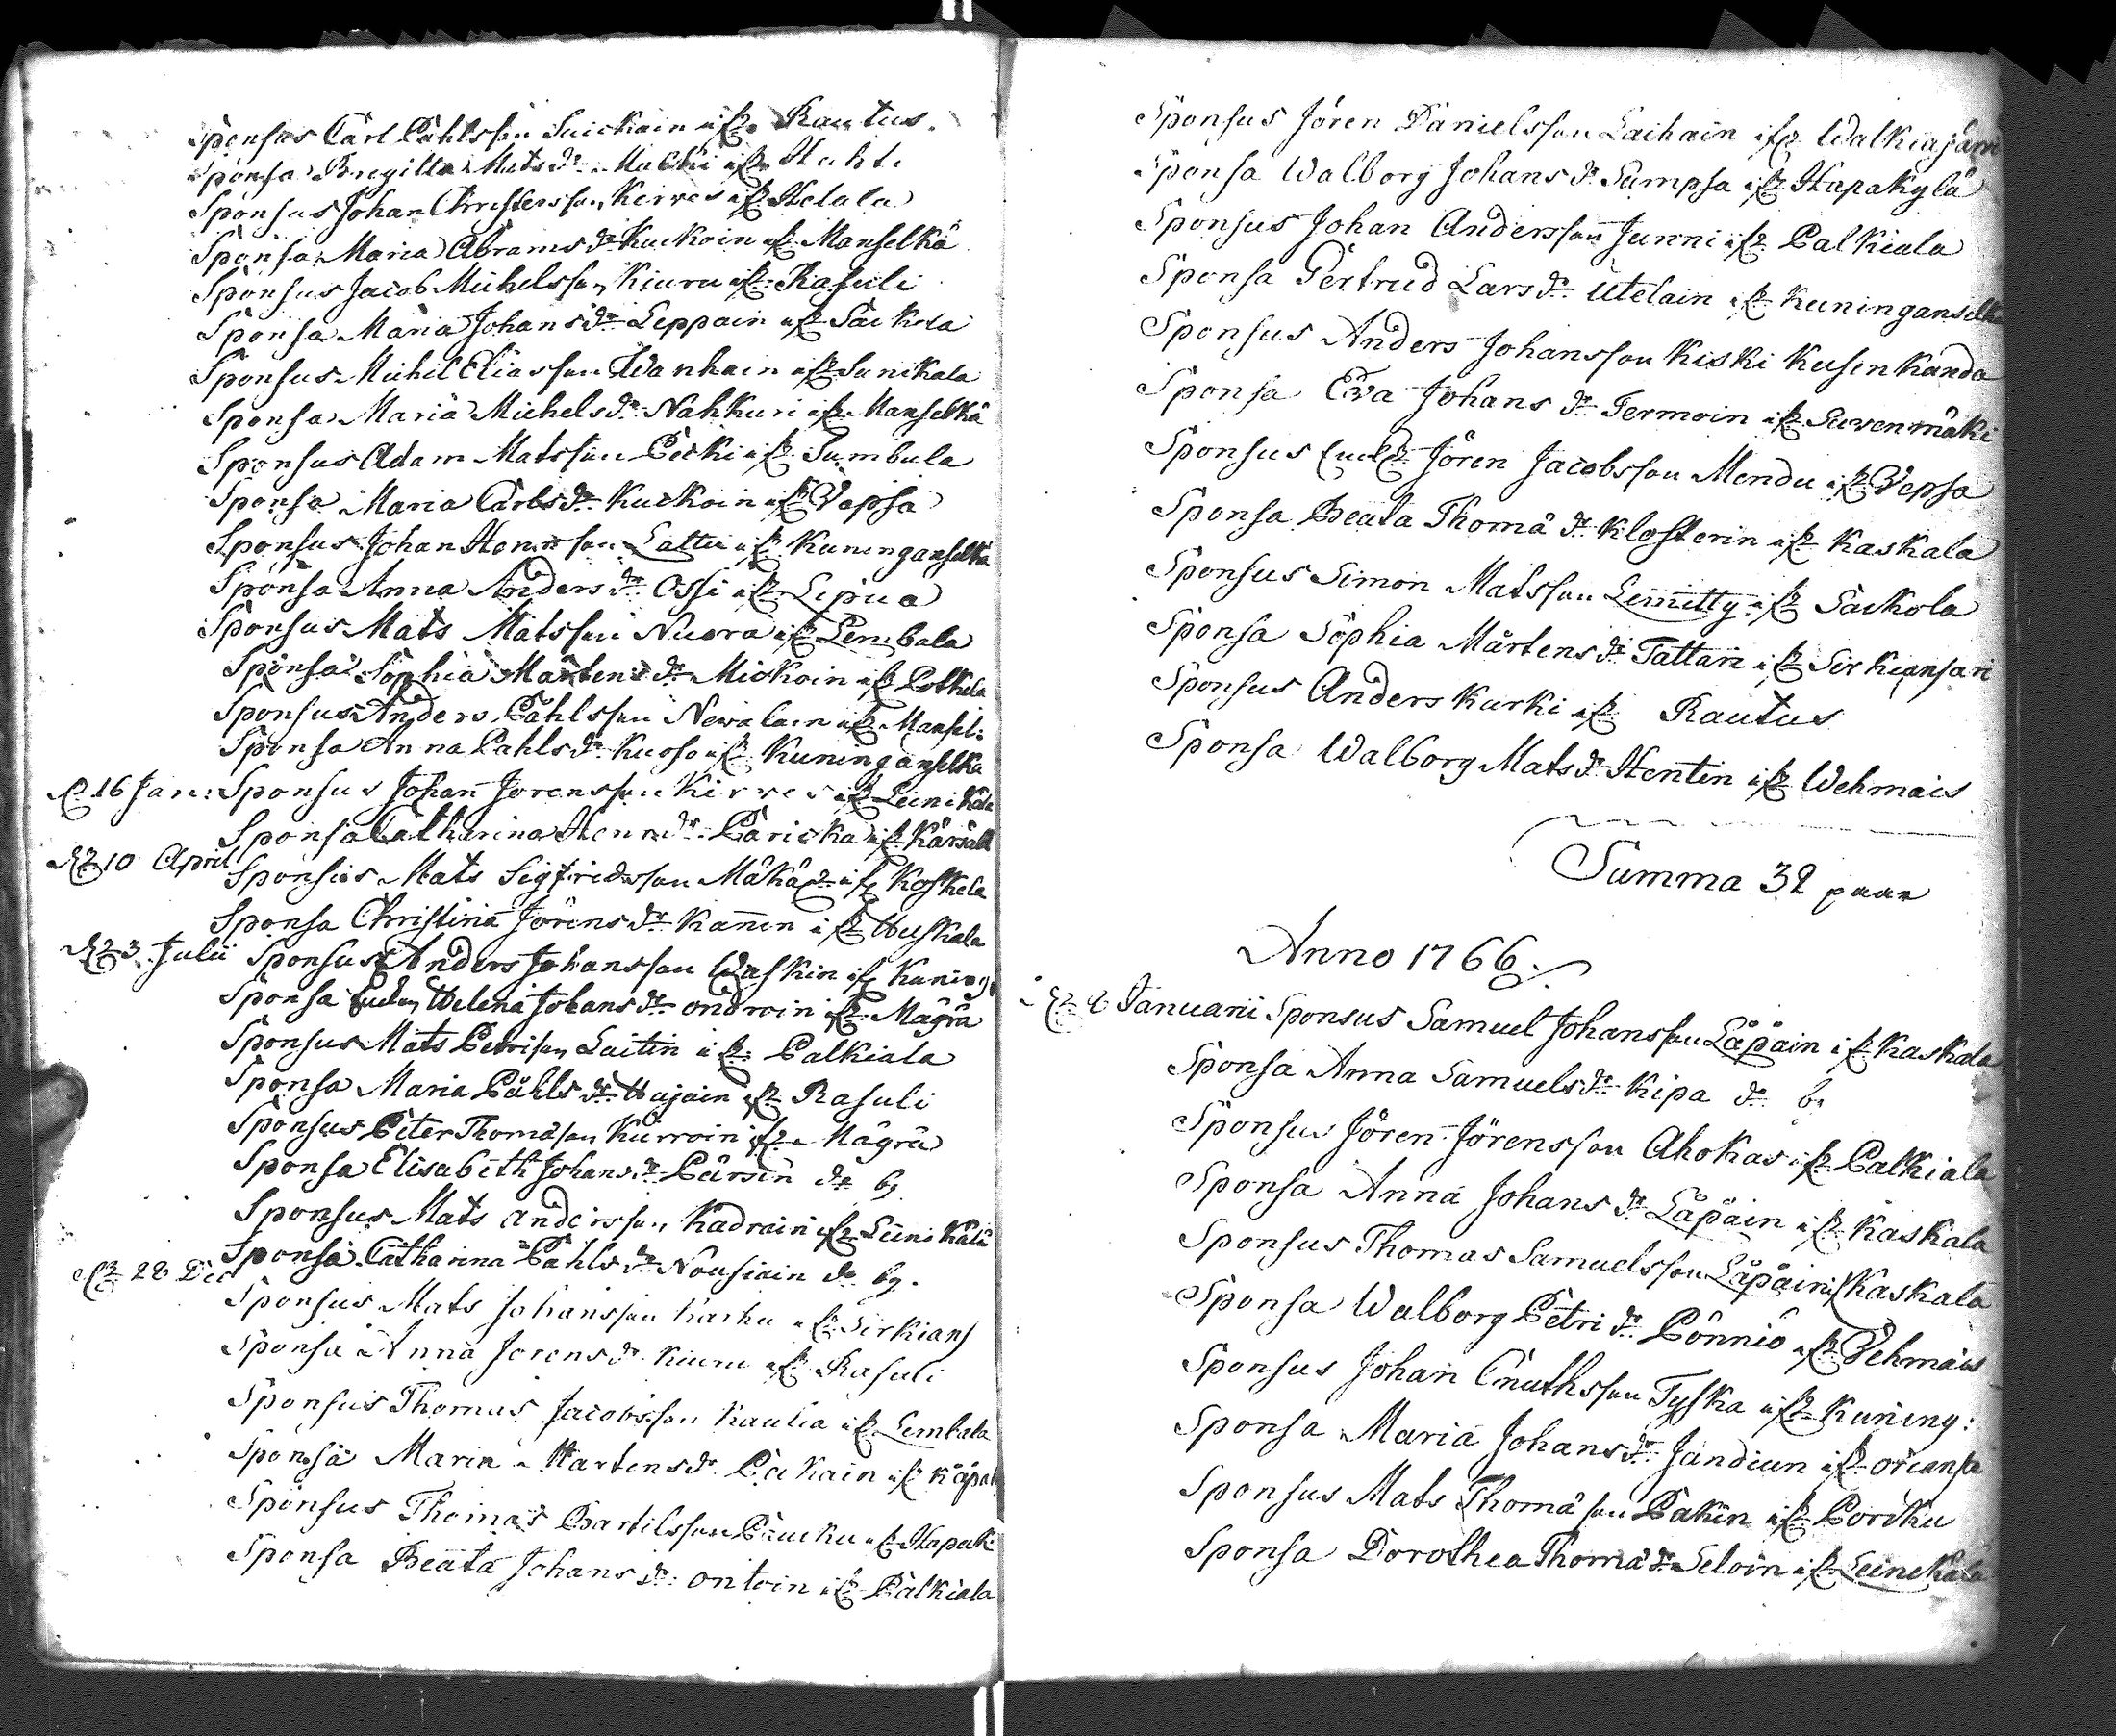 Sponsus Carl Påhlsson Suickain ifr. Rautus.
Sponsa Bregitta Mats dr. Malki ifr. Haht.
Sponsus Johan Christersson Kirves ifr. Hatala
Sponsa Maria Abrams dr. Kuckoin ifr. Manselkä
Sponsus Jacob Michelsson Kiuru ifr. Rasuli
Sponsa Maria Johans dr. Leppain ifr. Säckola
Sponsus Michel Eliasson Wanhain ifr. Sunikala
Sponsa Maria Michels dr. Nahkuri ifr. Manselkä
Sponsus Adam Matsson Pecki ifr. Sumbula
Sponsa Maria Carls dr. Kuckoin ifr. Vepsa
Sponsus Johan Henr. son Lattu ifr. Kuninganselkä
Sponsa Anna Anders dr. Ossi ifr. Lipua
Sponsus Mats Matsson Nuora ifr. Lembala
Sponsa Sophia Mårtens dr. Mickoin ifr. Potkela
Sponsus Anders Påhlsson Newalain ifr. Mansel:
Sponsa Anna Påhls dr. Kuosa ifr. Kuninganselkä
d. 16 Jan: Sponsus Johan Jörensson Kirves ifr. Leinikälä
Sponsa Catharina Henr. dr. Paricka ifr. Kärsälä
d. 10 April Sponsus Mats Sigfridsson Mäkär ifr. Koskela
Sponsa Christina Jörens dr. Kanen ifr. Huskala
d. 3 Julii Sponsus Anders Johansson Waskin ifr. Kuning:
Sponsa Enkan Helena Johans dr. Ondroin ifr. Mägrä
Sponsus Mats Petrison Laitin ifr. Palkiala
Sponsa Maria Påhls dr. Hujain ifr. Rasuli
Sponsus Peter Thomæson Kurroin ifr. Mägrä
Sponsa Elisabeth Johans dr. Pärsin do by
Sponsus Mats Andersson Kadrain ifr. Leinikälä
Sponsa Catharina Påhls dr. Nousiain do by.
d. 28 Dec Sponsus Mats Johansson Karhu ifr. Sirkians
Sponsa Anna Jörens dr. Kiuru ifr. Rasuli
Sponsus Thomas Jacobsson Kaulia ifr. Lembala
Sponsa Maria Martens dr. Päckäin ifr. Käpal
Sponsus Thomas Bartilsson Paucku ifr. Hapak:
Sponsa Beata Johans dr. Ontoin ifr. Palkiala
Sponsus Jören Danielsson Laihain ifr. Walkiajärvi
Sponsa Walborg Johans dr. Sumpsa ifr. Hapakylä
Sponsus Johan Andersson Junni ifr. Palkiala
Sponsa Gertrud Lars dr. Utelain ifr. Kuninganselkä
Sponsus Anders Johansson Kiski Kusenkanda
Sponsa Eva Johans dr. Termoin ifr. Suvenmäki
Sponsus Enkl. Jören Jacobsson Mendu ifr. Vepsa
Sponsa Beata Thomæ dr. Klosterin ifr. Kaskala
Sponsus Simon Matsson Lemitty ifr. Säckola
Sponsa Sophia Mårtens dr. Tattari ifr. Sirkiansari
Sponsus Anders Kurki ifr. Rautus
Sponsa Walborg Mats dr. Hentin ifr. Wehmais
Summa 32 paar
Anno 1766.
Januarii Sponsus Samuel Johansson Läpäin ifr. Kaskala
Sponsa Anna Samuels dr. Kipa do by
Sponsus Jören Jörensson Ahokas ifr. Palkiala
Sponsa Anna Johans dr. Läpäin ifr. Kaskala
Sponsus Thomas Samuelsson Läpäin ifr. Kaskala
Sponsa Walborg Petri dr. Pönniö ifr. Vehmais
Sponsus Johan Cnuthsson Tyska ifr. Kuning:
Sponsa Maria Johans dr. Jandiun ifr. Oriansa
Sponsus Mats Thomæson Pakin ifr. Porcku
Sponsa Dorothea Thomæ dr. Seloin ifr. Leinekälä